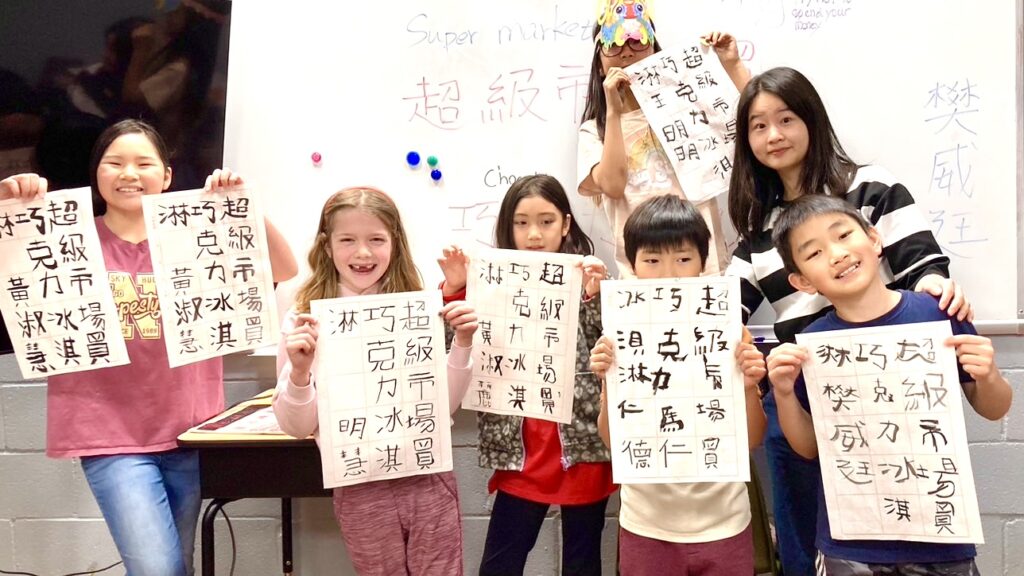 Super market
超級市
Choc
spend your
money
樊威
超級市場買
巧克力冰淇
淋黃淑慧
超級市場買
巧克力冰淇
淋黃淑慧
超級市場買
巧克力冰淇
淋明慧
超級市場買
巧克力冰淇
淋黃淑
超市場
巧克力冰淇
淋王明明
超級市場買
巧克力馬仁
冰淇淋仁德
超級市場買
巧克力冰淇
淋樊威